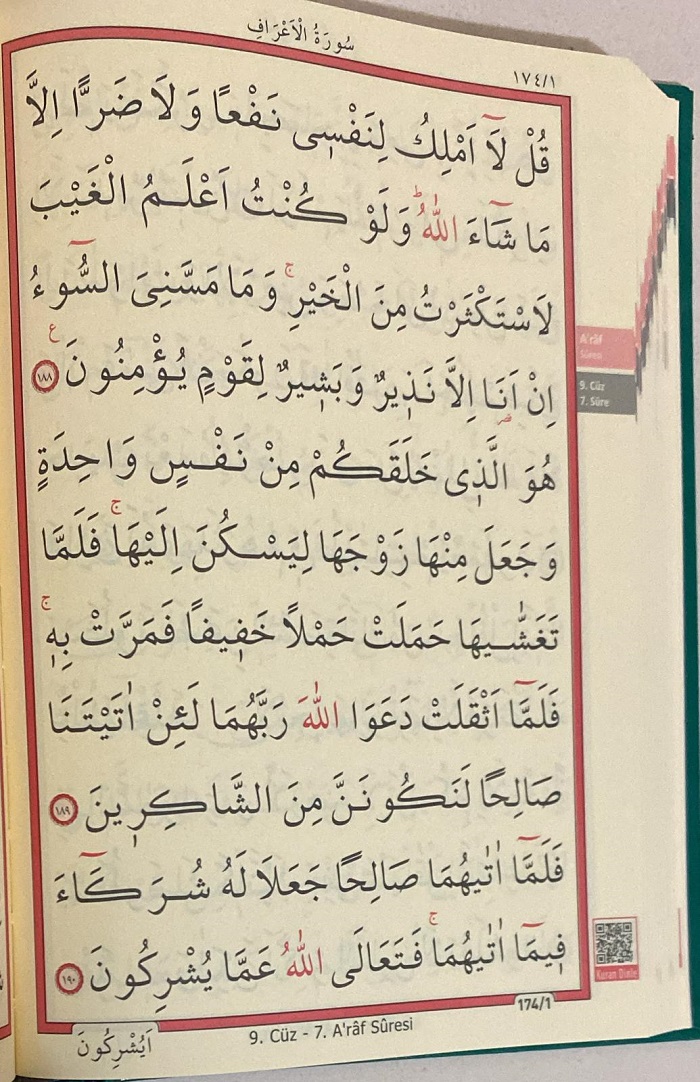 سُورَةُ الْاَعْرَافِ
١٧٤/١
قُلْ لَٓا اَمْلِكُ لِنَفْسٖى نَفْعًا وَلَا ضَرًّا اِلَّا
مَا شَٓاءَ اللّٰهُؕ وَلَوْ كُنْتُ اَعْلَمُ الْغَيْبَ
لَاسْتَكْثَرْتُ مِنَ الْخَيْرِۚ وَمَا مَسَّنِىَ السُّٓوءُ
اِنْ اَنَا اِلَّا نَذٖيرٌ وَبَشٖيرٌ لِقَوْمٍ يُؤْمِنُونَ ع ١٨٨
هُوَ الَّذٖى خَلَقَكُمْ مِنْ نَفْسٍ وَاحِدَةٍ
وَجَعَلَ مِنْهَا زَوْجَهَا لِيَسْكُنَ اِلَيْهَاۚ فَلَمَّا
تَغَشّٰيهَا حَمَلَتْ حَمْلًا خَفٖيفًا فَمَرَّتْ بِهٖۚ
فَلَمَّٓا اَثْقَلَتْ دَعَوَا اللّٰهَ رَبَّهُمَا لَئِنْ اٰتَيْتَنَا
صَالِحًا لَنَكُونَنَّ مِنَ الشَّاكِرٖينَ ١٨٩
فَلَمَّٓا اٰتٰيهُمَا صَالِحًا جَعَلَا لَهُ شُرَكَٓاءَ
فٖيمَٓا اٰتٰيهُمَاۚ فَتَعَالَى اللّٰهُ عَمَّا يُشْرِكُونَ ١٩٠
174/1
اَيُشْرِكُونَ
9. Cüz - 7. A'râf Sûresi
A'râf
Sûresi
9. Cüz
7. Sûre
Kuran Dinle